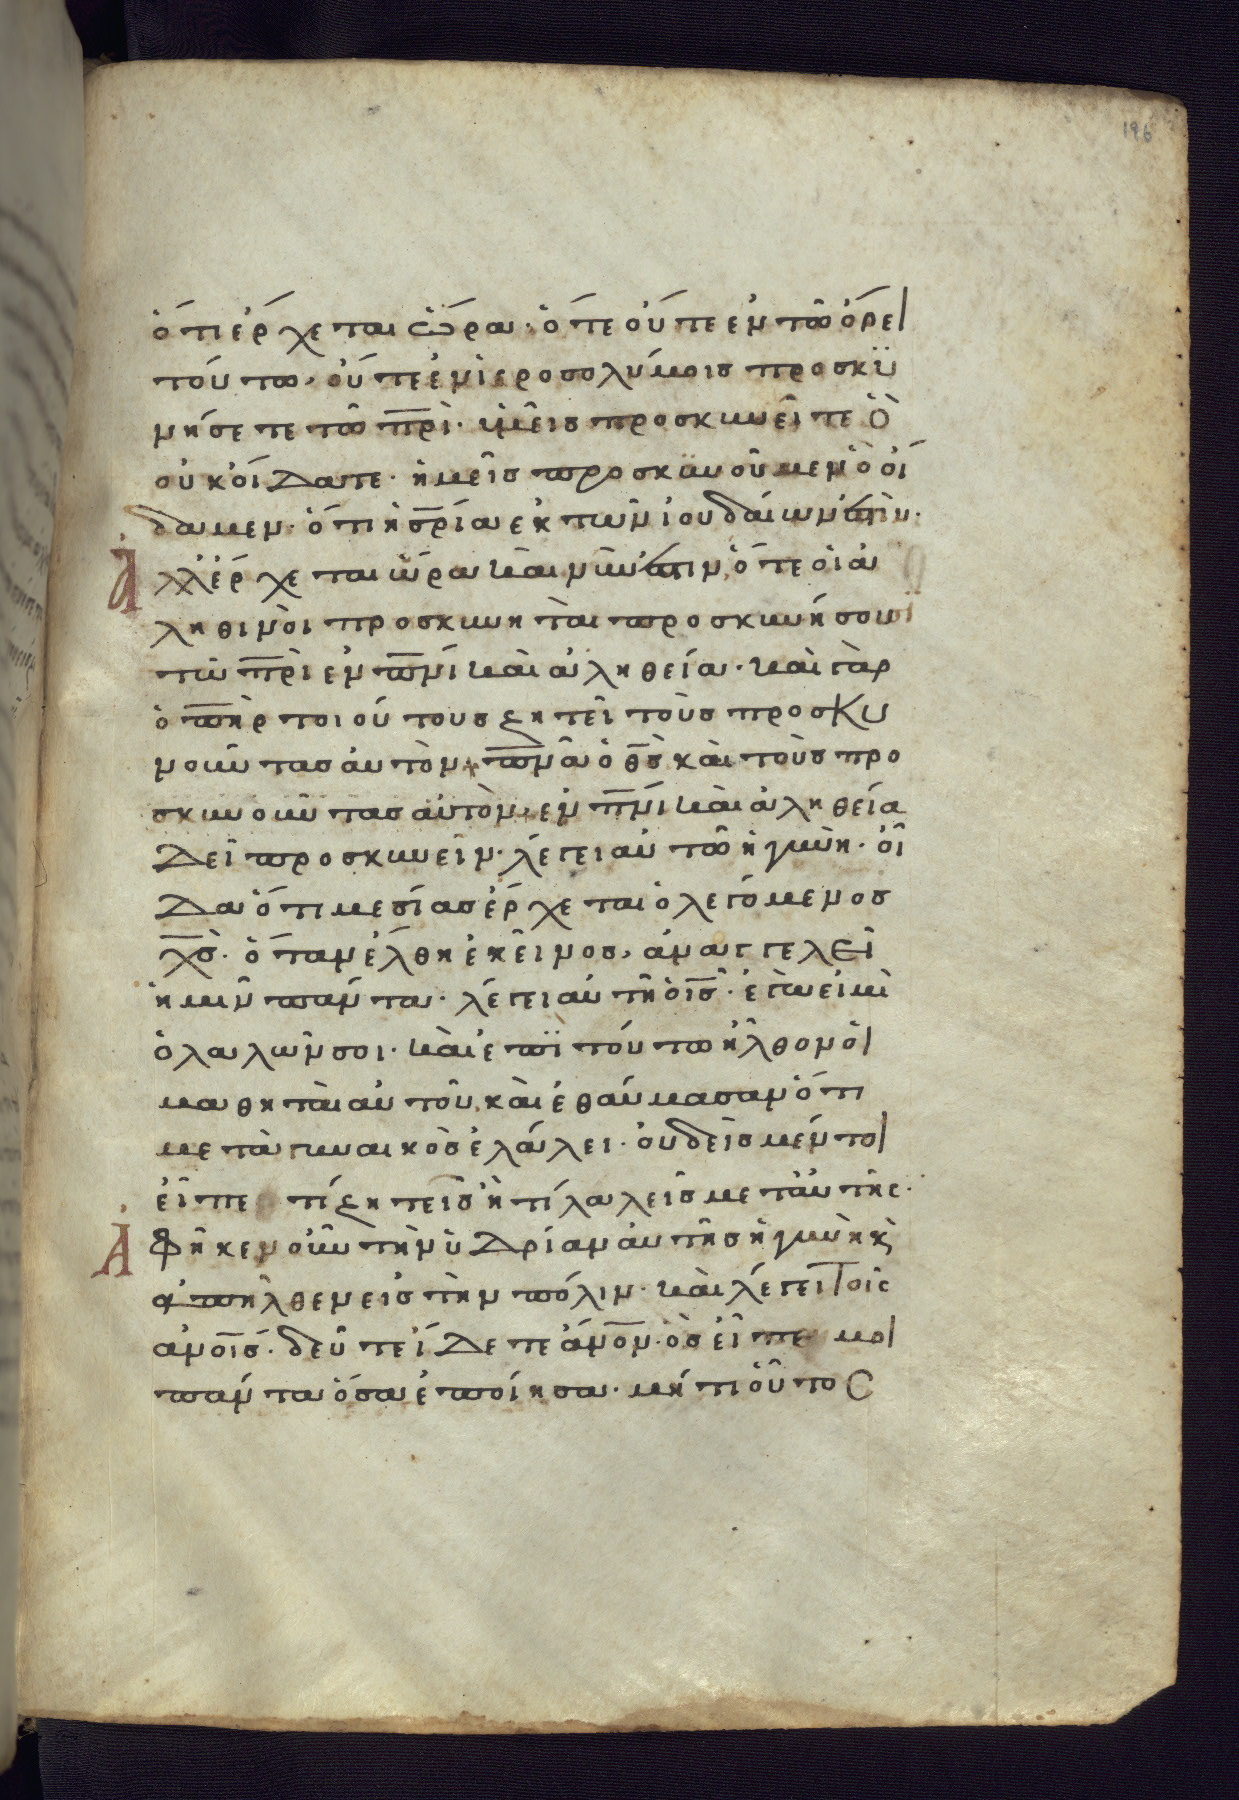 196
ὅτι ἔρχεται ὥρα· ὅτε οὔτε ἐν τῶ ὄρει
τούτω, οὔτε ἐν ἱεροσολύμοις προσκυ
νήσετε τῶ πρι· ὑμεῖς προσκυνεῖτε ὃ
οὐκ οἴδατε· ἡμεῖς προσκυνοῦμεν ὃ οἴ
δαμεν· ὅτι ἡ σρία ἐκ τῶν ἰουδαίων ἐστὶν·
Ἀλλ' ἔρχεται ὥρα καὶ νῦν ἐστιν, ὅτε οἱ ἀ
ληθινοὶ προσκυνηταὶ προσκυνήσουσι
τῶ πρὶ ἐν πνι καὶ ἀληθεία· καὶ γὰρ
ὁ πηρ τοιούτους ζητεῖ τοὺς προσκυ
νοῦντας αὐτὸν· πνα ὁ θς καὶ τοὺς προ
σκυνοῦντας αὐτὸν, ἐν πνι καὶ ἀληθεία
δεῖ προσκυνεῖν· λέγει αὐτῶ ἡ γυνὴ· οἶ
δα ὅτι μεσίας ἔρχεται ὁ λεγόμενος
χς· ὅταν ἔλθη ἐκεῖνος, ἀναγγελεῖ
ἡμῖν πάντα· λέγει αὐτῆ ὁ ις· ἐγώ εἰμι
ὁ λαλῶν σοι· καὶ ἐπὶ τούτω ἦλθον οἱ
μαθηταὶ αὐτοῦ, καὶ ἐθαύμασαν ὅτι
μετὰ γυναικὸς ἐλάλει· οὐδεὶς μέντοι
εἶπε τί ζητεῖς ἢ τί λαλεῖς μετ' αὐτῆς·
Ἀφῆκεν οὖν τὴν ὑδρίαν αὐτῆς ἡ γυνὴ κ
ἀπῆλθεν εἰς τὴν πόλιν· καὶ λέγει τοῖς
ανοις· δεῦτε ἴδετε ανον· ὃς εἶπε μοι
πάντα ὅσα ἐποίησα· μήτι οὗτος